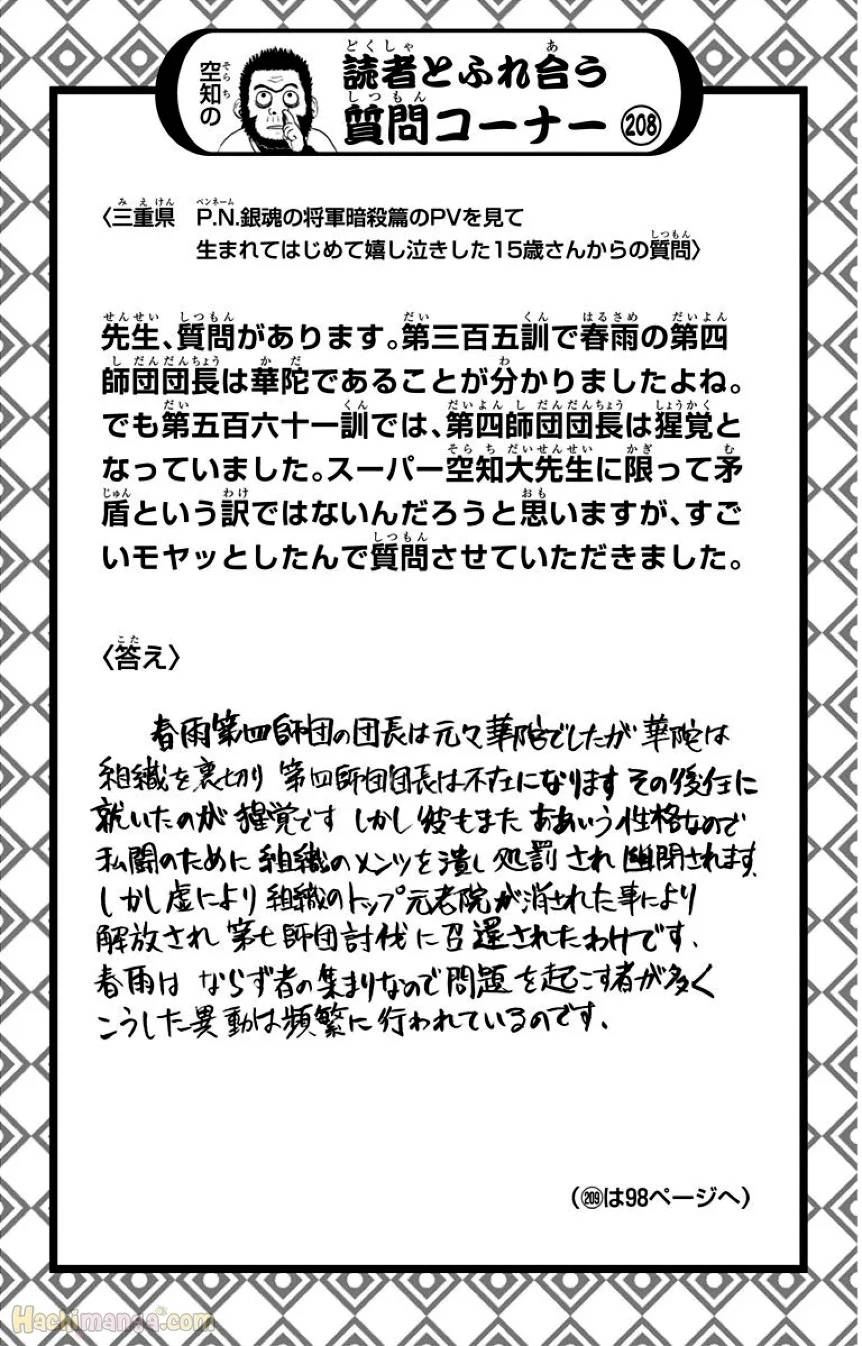 空知の
読者とふれ合う
質問コーナー 208
〈三重県 P.N.銀魂の将軍暗殺篇のPVを見て
生まれてはじめて嬉し泣きした15歳さんからの質問〉
先生、質問があります。第三百五訓で春雨の第四
師団団長は華陀であることが分かりましたよね。
でも第五百六十一訓では、第四師団団長は猩覚と
なっていました。スーパー空知大先生に限って矛
盾という訳ではないんだろうと思いますが、すご
いモヤッとしたんで質問させていただきました。
〈答え〉
春雨第四師団の団長は元々華陀でしたが 華陀は
組織を裏切り 第四師団団長は不在になります その後任に
就いたのが 猩覚です しかし彼もまた ああいう性格なので
私闘のために 組織のメンツを潰し 処罰され 幽閉されます
しかし虚により 組織のトップ元老院が消された事により
解放され 第七師団討伐に召還されたわけです、
春雨は ならず者の集まりなので問題を起こす者が多く
こうした異動は頻繁に行われているのです、
(209は98ページへ)
Hachimanga.com